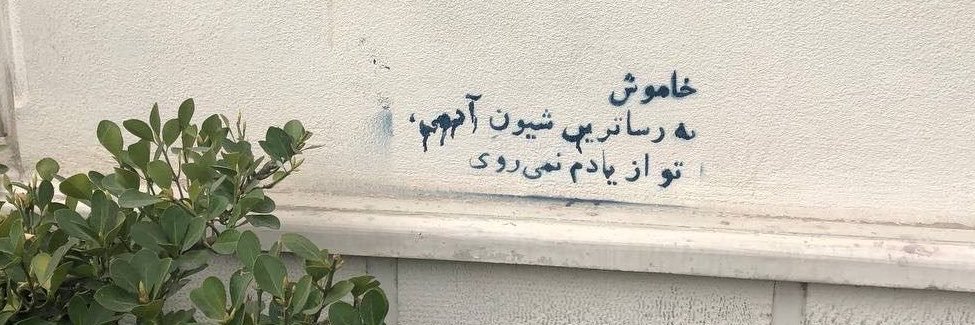 خاموش
به رساترین شیون آدمی،
تو از یادم نمی‌روی